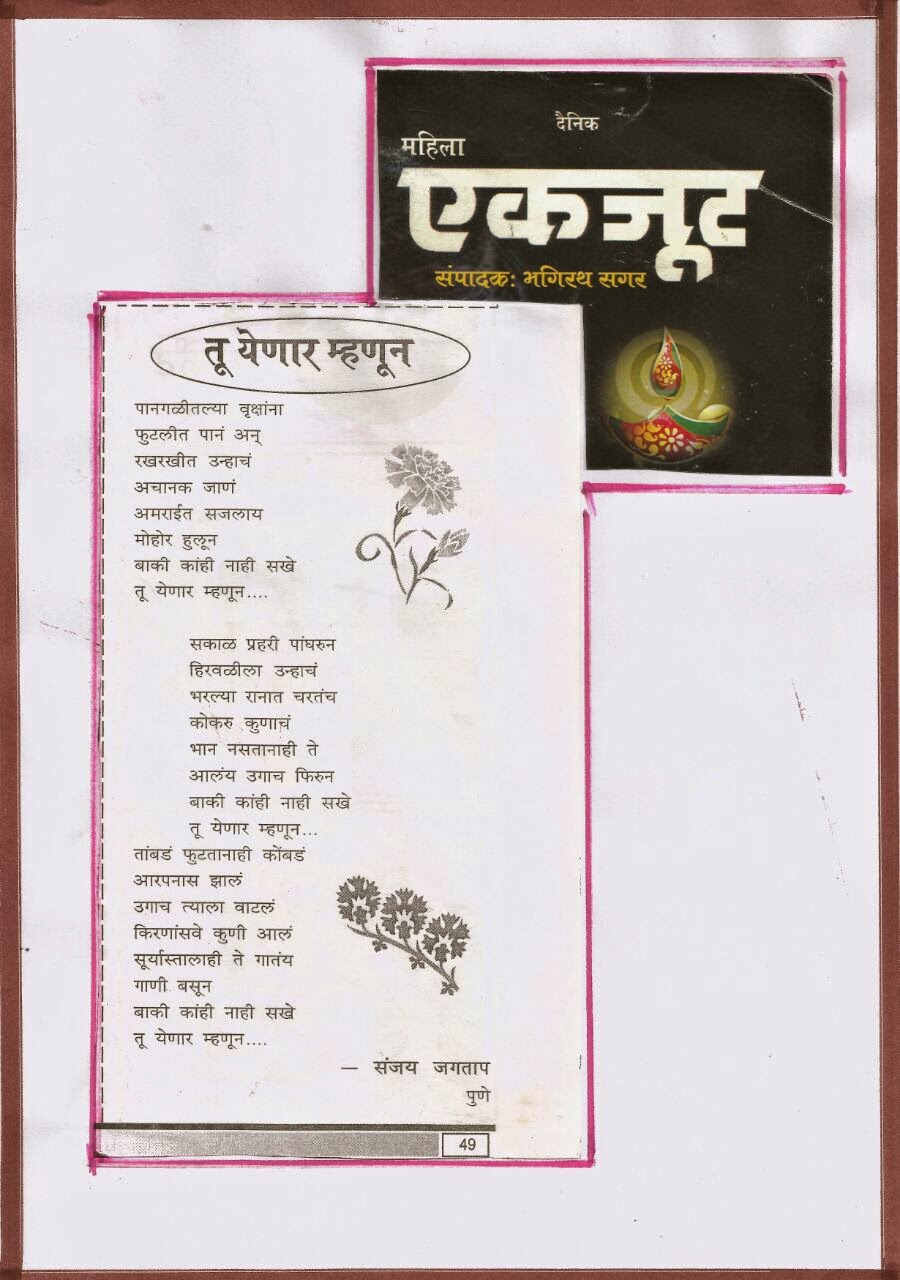 दैनिक
महिला
एकजूट
संपादक: भगिरथ सगर
तू येणार म्हणून
पानगळीतल्या वृक्षांना
फुटलीत पानं अन्
रखरखीत उन्हाचं
अचानक जाणं
अमराईत सजलाय
मोहोर हुलून
बाकी कांही नाही सखे
तू येणार म्हणून....
सकाळ प्रहरी पांघरुन
हिरवळीला उन्हाचं
भरल्या रानात चरतंच
कोकरु कुणाचं
भान नसतानाही ते
आलंय उगाच फिरुन
बाकी कांही नाही सखे
तू येणार म्हणून...
तांबडं फुटतानाही कोंबडं
आरपनास झालं
उगाच त्याला वाटलं
किरणांसवे कुणी आलं
सूर्यास्तालाही ते गातंय
गाणी बसून
बाकी कांही नाही सखे
तू येणार म्हणून....
– संजय जगताप
पुणे
49